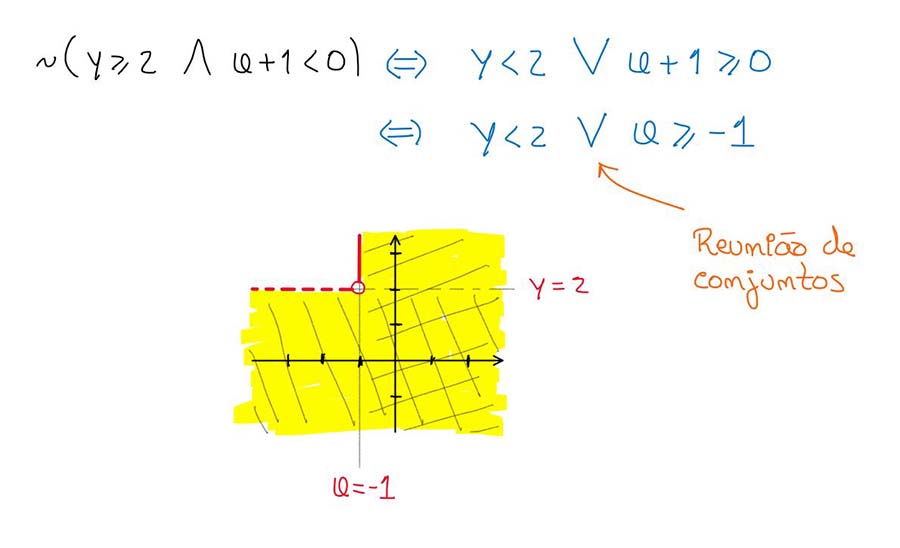 ~(y⩾2 ∧ x+1<0) ⇔ y<2 ∨ x+1⩾0
⇔ y<2 ∨ x⩾-1
Reunião de
conjuntos
y=2
x=-1